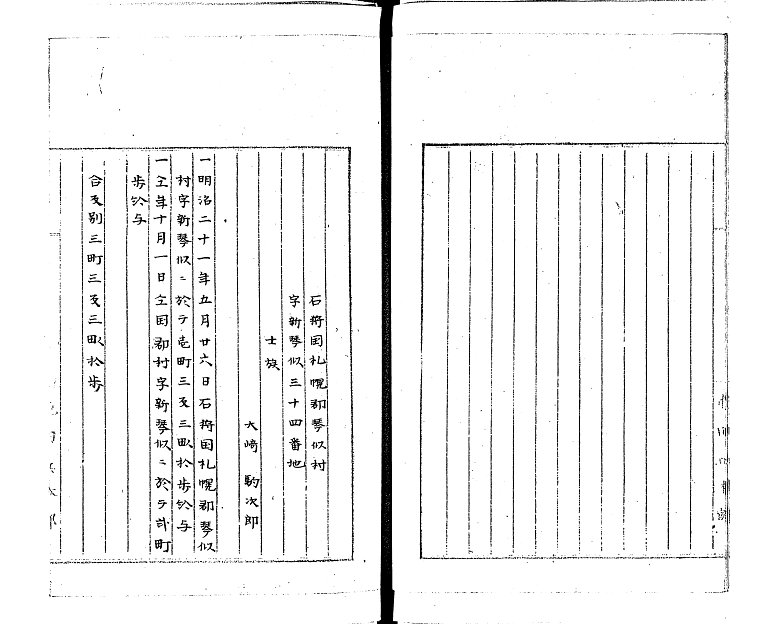 石狩国札幌郡琴似村
字新琴似三十四番地
士族
大崎　駒次郎
一明治二十一年五月廿六日石狩国札幌郡琴似
村字新琴似ニ於テ壱町三反三畝拾歩給与
一仝年十月一日仝国郡村字新琴似ニ於テ弐町
歩給与
合反別三町三反三畝拾歩